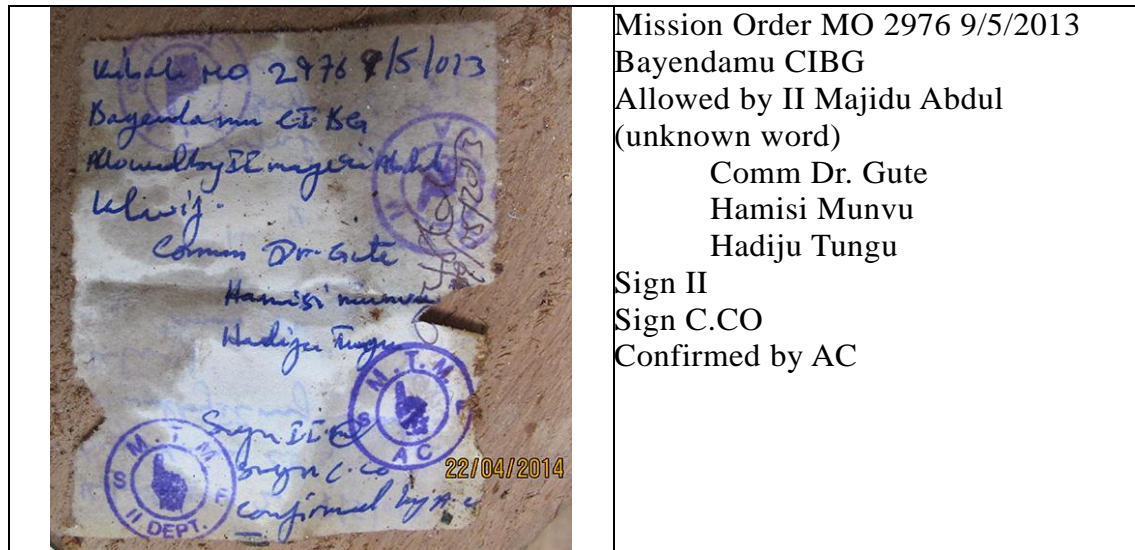 Kibali MO 2976 9/5/013
Bayendamu CI BG
Allowed by II Abdul
Comm Dr. Gute
Hamisi munvu
Hadija Tungu
M.T.M
S F
AC
Sign II
Sign C.Co
Confirmed by A.C
M.T.M
S F
II DEPT.
22/04/2014
Mission Order MO 2976 9/5/2013
Bayendamu CIBG
Allowed by II Majidu Abdul
(unknown word)
Comm Dr. Gute
Hamisi Munvu
Hadiju Tungu
Sign II
Sign C.CO
Confirmed by AC